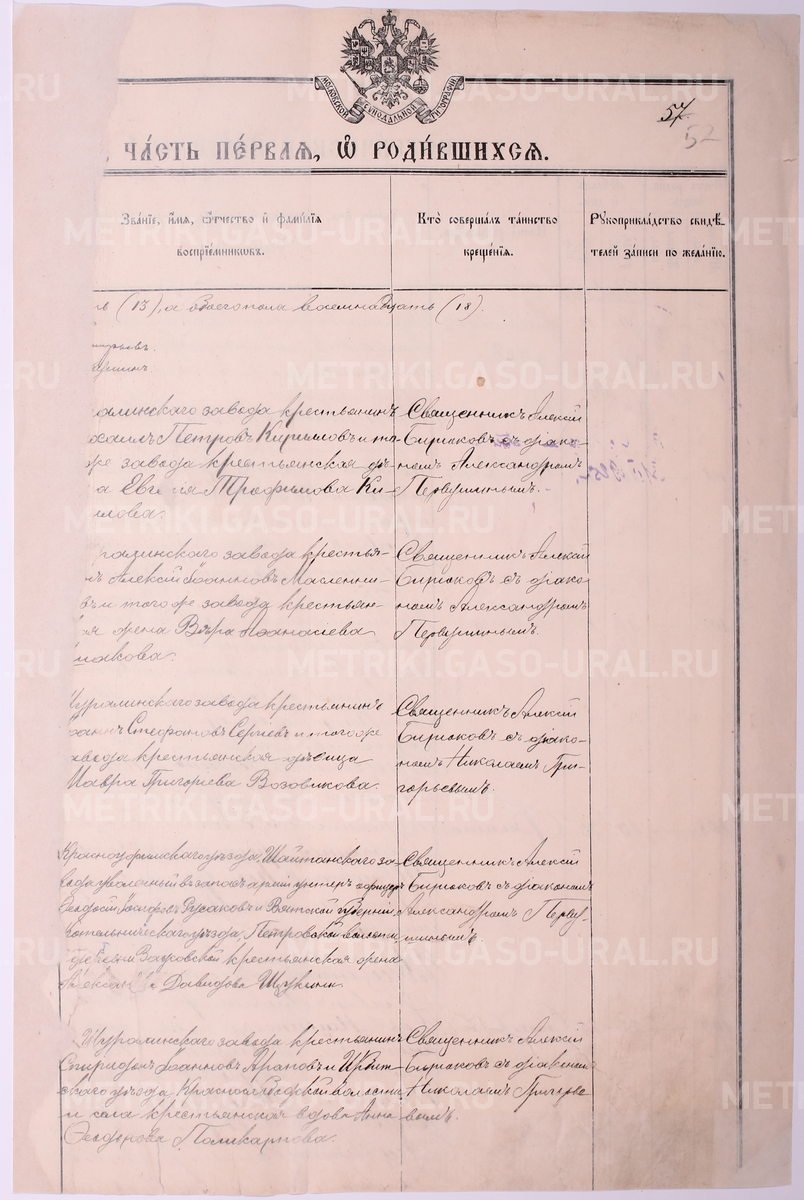 МОСКОВСКОЙ СѴНОДАЛЬНОЙ ТИПОГРАФІИ
57
52
ЧА́СТЬ ПЕ́РВАѦ, Ѡ҆ РОДИ́ВШИХСѦ.
Зва́нїе, и҆́мѧ, ѻ҆́тчество и҆ фами́лїѧ
воспрїе́мниковъ.
Кто̀ соверша́лъ та́инство
креще́нїѧ.
Рꙋкоприкла́дство свидѣ́-
телей за́писи по жела́нїю.
ть (13), а обоего пола восемнадцать (18).
алинскаго завода крестьянинъ
хаилъ Петровъ Кирилловъ и то
же завода крестьянская дѣ-
а Евгенія Трофимова Ки-
ллова.
Священникъ Алексій
Бирюковъ съ діако-
номъ Александромъ
Первушинымъ.
ралинскаго завода крестья-
нъ Алексій Іоанновъ Масленни-
въ и того же завода крестьян-
ая жена Вѣра Аѳанасіева
макова.
Священникъ Алексій
Бирюковъ съ діако-
номъ Александромъ
Первушинымъ.
Шуралинскаго завода крестьянинъ
оаннъ Стефановъ Сергѣевъ и того же
завода крестьянская дѣвица
Мавра Григорьева Возовикова.
Священникъ Алексій
Бирюковъ съ діако-
номъ Николаемъ Гри-
горьевымъ.
Красноуфимскаго уѣзда Шайтанскаго за-
вода уволенный въ запасъ арміи унтеръ офицеръ
Русаковъ и Вятской губерніи,
Котельническаго уѣзда, Петровской волости,
деревни крестьянская жена
Александра Давидова
Священникъ Алексій
Бирюковъ съ діакономъ
Александромъ Перву-
шинымъ.
Шуралинскаго завода крестьянинъ
Спиридонъ Іоанновъ Араповъ и Ирбит-
скаго уѣзда Краснослободской волости
и села крестьянская вдова Анна
Ѳеодорова Поликарпова.
Священникъ Алексій
Бирюковъ съ діакономъ
Николаемъ Григорье
вымъ.
METRIKI.GASO-URAL.RU